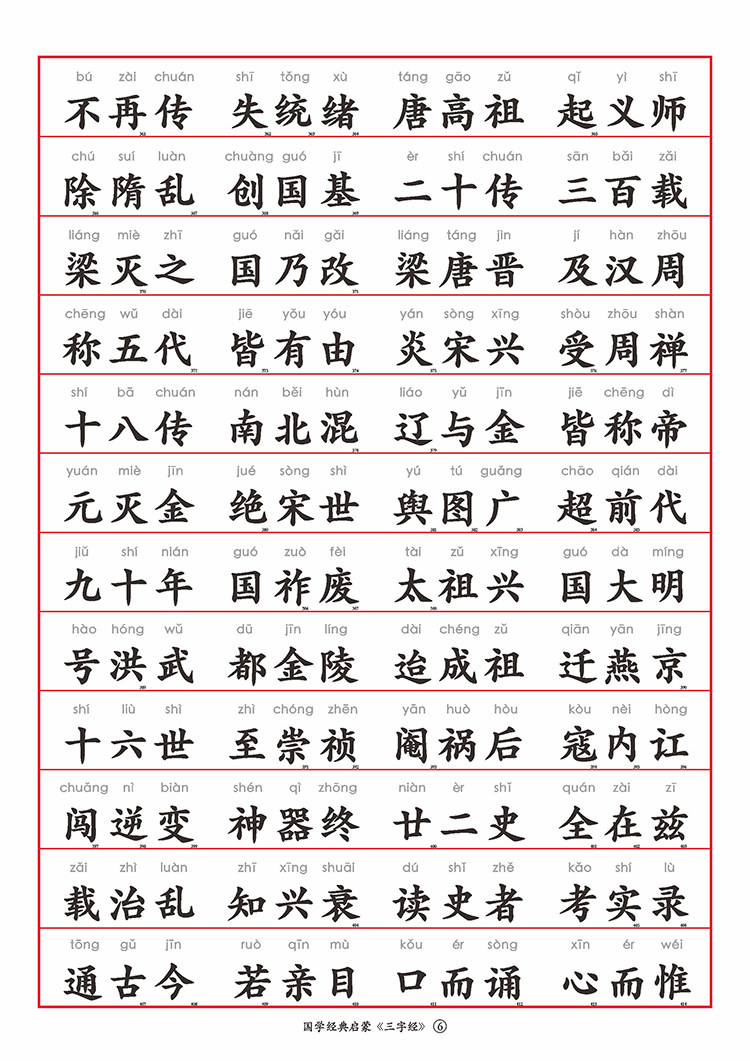 bú zài chuán shī tǒng xù táng gāo zǔ qǐ yì shī
不再传 失统绪 唐高祖 起义师
chú suí luàn chuàng guó jī èr shí chuán sān bǎi zǎi
除隋乱 创国基 二十传 三百载
liáng miè zhī guó nǎi gǎi liáng táng jìn jí hàn zhōu
梁灭之 国乃改 梁唐晋 及汉周
chēng wǔ dài jiē yǒu yóu yán sòng xīng shòu zhōu shàn
称五代 皆有由 炎宋兴 受周禅
shí bā chuán nán běi hùn liáo yǔ jīn jiē chēng dì
十八传 南北混 辽与金 皆称帝
yuán miè jīn jué sòng shì yú tú guǎng chāo qián dài
元灭金 绝宋世 舆图广 超前代
jiǔ shí nián guó zuò fèi tài zǔ xīng guó dà míng
九十年 国祚废 太祖兴 国大明
hào hóng wǔ dū jīn líng dài chéng zǔ qiān yān jīng
号洪武 都金陵 迨成祖 迁燕京
shí liù shì zhì chóng zhēn yān huò hòu kòu nèi hòng
十六世 至崇祯 阉祸后 寇内讧
chuǎng nì biàn shén qì zhōng niàn èr shǐ quán zài zī
闯逆变 神器终 廿二史 全在兹
zǎi zhì luàn zhī xīng shuāi dú shǐ zhě kǎo shí lù
载治乱 知兴衰 读史者 考实录
tōng gǔ jīn ruò qīn mù kǒu ér sòng xīn ér wéi
通古今 若亲目 口而诵 心而惟
国学经典启蒙《三字经》⑥